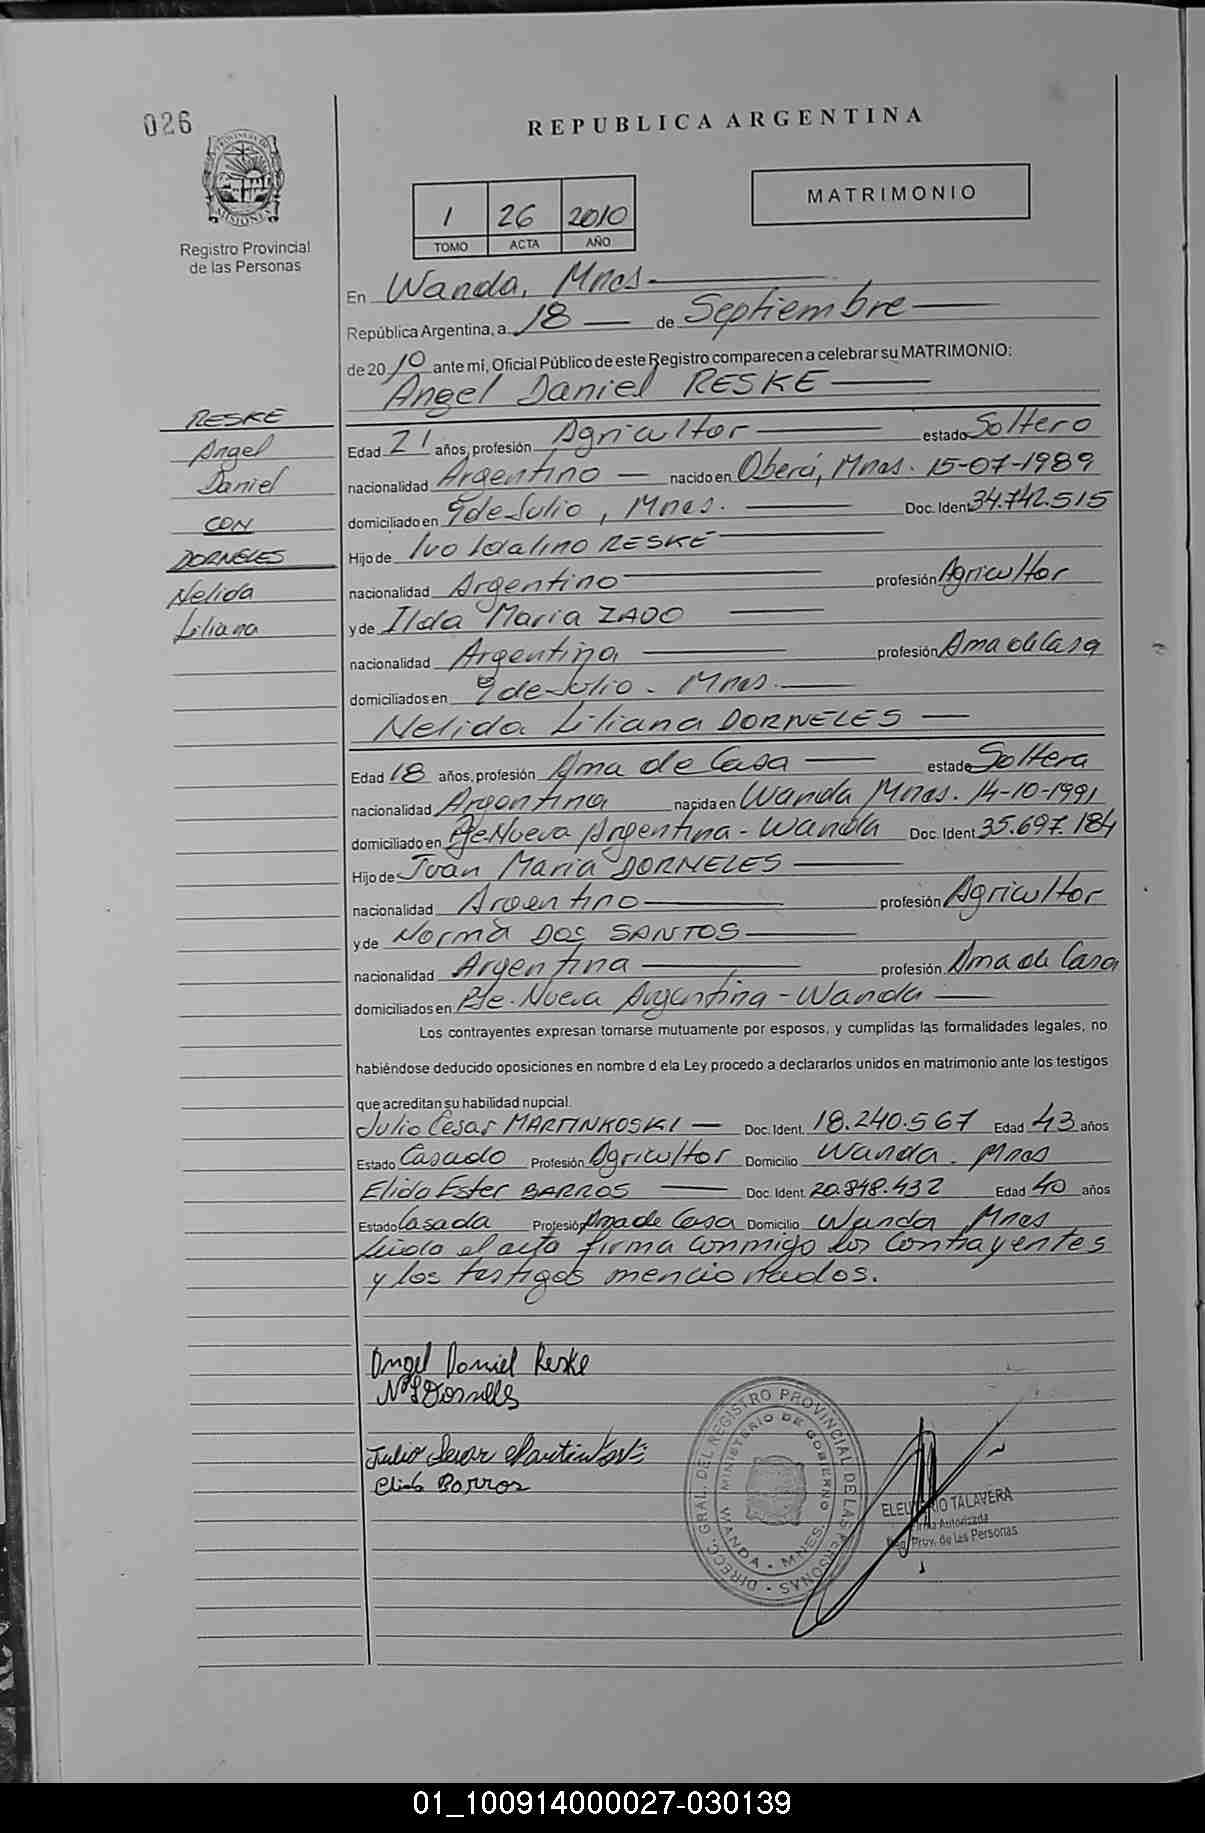 026
REPUBLICA ARGENTINA
PROVINCIA DE
MISIONES
Registro Provincial
de las Personas
1 26 2010
TOMO ACTA AÑO
MATRIMONIO
En Wanda, Mnes
República Argentina, a 18 de Septiembre
de 2010 ante mi, Oficial Público de este Registro comparecen a celebrar su MATRIMONIO:
Angel Daniel RESKE
RESKE
Angel
Daniel
CON
DORNELES
Nelida
Liliana
Edad 21 años, profesión Agricultor estado Soltero
nacionalidad Argentino nacido en Oberá, Mnes. 15-07-1989
domiciliado en 9 de Julio, Mnes. Doc. Ident 34.742.515
Hijo de Ivo Idalino RESKE
nacionalidad Argentino profesión Agricultor
y de Ilda Maria ZADO
nacionalidad Argentina profesión Ama de Casa
domiciliados en 9 de Julio - Mnes.
Nelida Liliana DORNELES
Edad 18 años, profesión Ama de Casa estado Soltera
nacionalidad Argentina nacida en Wanda Mnes. 14-10-1991
domiciliado en Pje. Nueva Argentina - Wanda Doc. Ident 35.697.184
Hijo de Juan Maria DORNELES
nacionalidad Argentino profesión Agricultor
y de Norma DOS SANTOS
nacionalidad Argentina profesión Ama de Casa
domiciliados en Pje. Nueva Argentina - Wanda
Los contrayentes expresan tomarse mutuamente por esposos, y cumplidas las formalidades legales, no
habiéndose deducido oposiciones en nombre d ela Ley procedo a declararlos unidos en matrimonio ante los testigos
que acreditan su habilidad nupcial.
Julio Cesar MARTINKOSKI Doc. Ident. 18.240.567 Edad 43 años
Estado Casado Profesión Agricultor Domicilio Wanda - Mnes
Elida Ester BARROS Doc. Ident. 20.848.432 Edad 40 años
Estado Casada Profesión Ama de Casa Domicilio Wanda Mnes
Leida el acta firma conmigo los contrayentes
y los testigos mencionados.
Angel Daniel Reske
N L Dornelles
Julio Cesar Martinkoski
Elida Barros
DIRECC. GRAL. DEL REGISTRO PROVINCIAL DE LAS PERSONAS
MINISTERIO DE GOBIERNO
WANDA - MNES.
TALAVERA
Autorizada
Reg. Prov. de las Personas
01_100914000027-030139